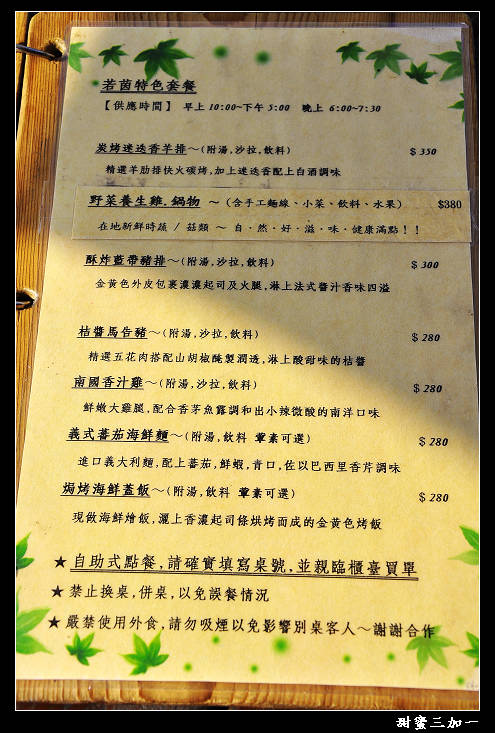 若茵特色套餐
【供應時間】 早上 10:00~下午 5:00 晚上 6:00~7:30
炭烤迷迭香羊排~(附湯,沙拉,飲料) $ 350
精選羊肋排快火碳烤,加上迷迭香配上白酒調味
野菜養生雞.鍋物 ~ (含手工麵線、小菜、飲料、水果) $380
在地新鮮時蔬 / 菇類 ~ 自.然.好.滋.味.健康滿點!!
酥炸藍帶豬排~(附湯,沙拉,飲料) $ 300
金黃色外皮包裹濃濃起司及火腿,淋上法式醬汁香味四溢
桔醬馬告豬~(附湯,沙拉,飲料) $ 280
精選五花肉搭配山胡椒醃製潤透,淋上酸甜味的桔醬
南國香汁雞~(附湯,沙拉,飲料) $ 280
鮮嫩大雞腿,配合香茅魚露調和出小辣微酸的南洋口味
義式蕃茄海鮮麵~(附湯,飲料 葷素可選) $ 280
進口義大利麵,配上蕃茄,鮮蝦,青口,佐以巴西里香芹調味
焗烤海鮮蓋飯~(附湯,飲料 葷素可選) $ 280
現做海鮮燴飯,灑上香濃起司條烘烤而成的金黃色烤飯
★ 自助式點餐,請確實填寫桌號,並親臨櫃臺買單
★ 禁止換桌,併桌,以免誤餐情況
★ 嚴禁使用外食,請勿吸煙以免影響別桌客人~謝謝合作
甜蜜三加一